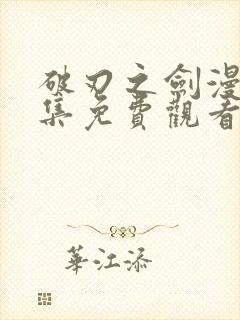 破刃之劍漫
集免費觀看
華江添